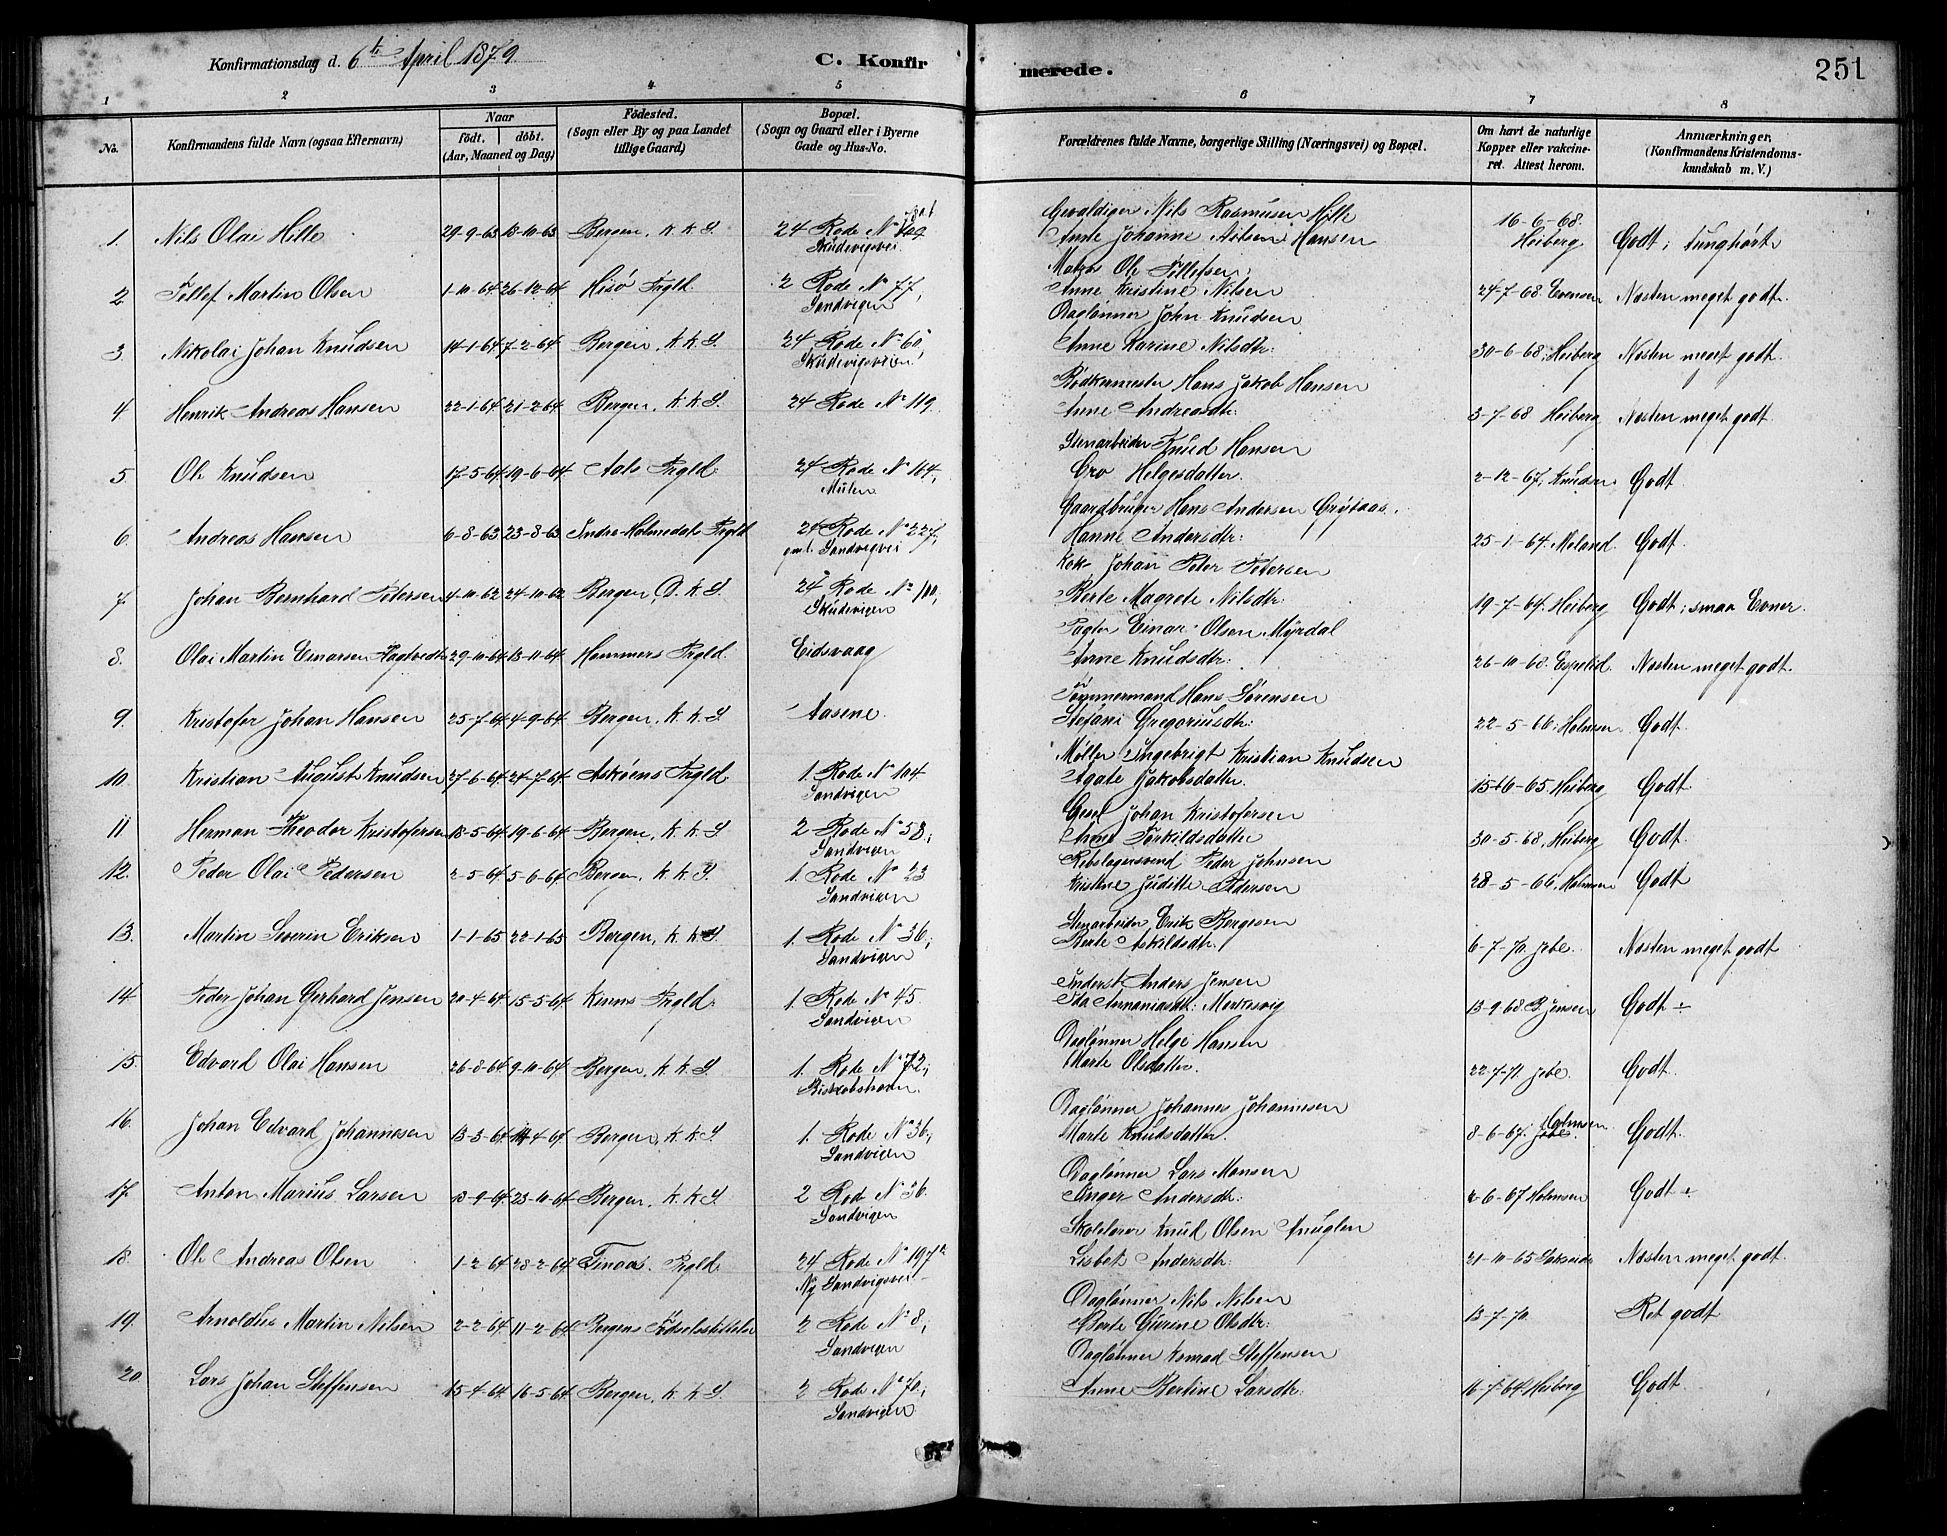 Konfirmationsdag d. 6te April 1879 C. Konfirmerede. 251
1 2 3 4 5 6 7 8
No. Konfirmandens fulde Navn (ogsaa Efternavn) Naar født. døbt. (Aar, Maaned og Dag) Fødested. (Sogn eller By og paa Landet tillige Gaard) Bopæl. (Sogn og Gaard eller i Byerne Gade og Hus-No. Forældrenes fulde Navne, borgerlige Stilling (Næringsvei) og Bopæl. Om havt de naturlige Kopper eller vakcineret. Attest herom. Anmærkninger, (Konfirmandens Kristendomskundskab m. V.)
Gevaldiger Nils Rasmusen Hille
1. Nils Olai Hille 29-9-63 18-10-63 Bergen, K. K. S. 24 Rode No Skudevigsvei Anne Johanne Nilsen Hansen 16-6-68 Heiberg Godt; tunghørt
Matros Ole Tellefsen,
2. Tellef Martin Olsen 1-10-64 26-12-64 Hisø Prgld. 2 Rode No 77, Sandvigen Anne Kristine Nilsen 24-7-68. Evensen Næsten meget godt.
Daglønner John Knudsen
3. Nikolai Johan Knudsen 14-1-64 7-2-64 Bergen, K. K. S. 24 Rode No 60 Skudevigsveien Anne Karine Nilsdtr. 30-6-68, Heiberg Næsten meget godt.
Bødkermester Hans Jakob Hansen
4 Henrik Andreas Hansen 22-1-64 21-2-64 Bergen, K. K. S. 24 Rode No 119. Anne Andreasdtr. 3-7-68 Heiberg Næsten meget godt.
Stenarbeider Knud Hansen
5. Ole Knudsen 17-5-64 19-6-64 Aals Prgld. 24 Rode No 164, Mulen Gro Helgesdatter. 2-12-67, Knudsen Godt.
Gaardbruger Hans Andersen Grøtaas.
6. Andreas Hansen 6-8-63 23-8-63 Indre-Holmedals Prgld 24 Rode No 227, gml. Sandvigvei Hanne Andersdtr: 25-1-64. Meland. Godt.
Kok Johan Peter Petersen
7. Johan Bernhard Petersen 4-10-62 24-10-62 Bergen, D. K. S. 24 Rode No 100, Skudevigen Berte Magrete Nilsdtr: 19-7-64. Heiberg Godt; smaa Evner.
Pagter Einar Olsen Myrdal
8. Olai Martin Einarsen Hagtvedt 29-10-64 13-11-64 Hammers Prgld. Eidsvaag Anne Knudsdtr: 26-10-68. Næsten meget godt.
Tømmermand Hans Sørensen
9. Kristofer Johan Hansen 25-7-64 4-9-64 Bergen, K. K. S. Aasene. Stefani Gregoriusdtr: 22-5-66, Holmsen Godt.
Møller Ingebrigt Kristian Knudsen
10. Kristian August Knudsen 27-6-64 24-7-64 Askøens Prgld. 1. Rode No 104 Sandvigen Agate Jakobsdatter. 15-6-65, Heiberg Godt.
Johan Kristofersen
11 Herman Theodor Kristofersen 18-5-64 19-6-64 Bergen, K. K. S. 2 Rode No 58, Sandvigen Anne Torkildsdatter 30-5-68, Heiberg Godt.
Rebslagersvend Peder Johnsen
12. Peder Olai Pedersen 2-5-64 5-6-64 Bergen, K. K. S. 1. Rode No 23 Sandvigen Kristine Juditte Pedersen 28-5-66, Holmsen Godt
Stenarbeider Erik Bergesen
13. Martin Severin Eriksen 1-1-65 22-1-65 Bergen, K. K. S. 1. Rode No 36, Sandvigen Berte Askildsdtr. 6-7-70. Jebe. Næsten meget godt
Inderst Anders Jensen
14 Peder Johan Gerhard Jensen 20-4-64 15-5-64 Kinns Prgld. 1. Rode No 45 Sandvigen Ida Annaniasdtr: Morkesvig 13-9-68 B. Jensen Godt ÷
Daglønner Helge Hansen
15. Edvard Olai Hansen 26-8-64 9-10-64 Bergen, K. K. S. 1. Rode No 72, Biskobshavn. Marte Olsdatter. 22-7-71. Jebe. Godt.
Daglønner Johannes Johannesen
16. Johan Edvard Johannesen 13-3-64 14-4-64 Bergen, K. K. S. 1. Rode No 36, Sandvigen Marte Knudsdatter. 8-6-67. Holmsen Godt.
Daglønner Lars Monsen
17. Anton Marius Larsen 13-9-64 23-10-64 Bergen, K. K. S. 2 Rode No 36. Sandvigen Inger Andersdtr: 2-6-67 Holmsen Godt ÷
Skolelærer Knud Olsen Anuglen
18. Ole Andreas Olsen 1-2-64 28-2-64 Finaas. Prgld. 24 Rode No 197a Ny Sandvigsvei Lisbet Andersdtr: 21-10-65 Næsten meget godt.
Daglønner Nils Nilsen
19. Arnoldus Martin Nilsen 2-2-64 11-2-64 Bergens Fødselsstiftelse 2 Rode No 8, Sandvigen Berte Gurine Olsdtr: 13-7-70. Ret godt
Daglønner Konrad Steffensen
20. Lars Johan Steffensen 15-4-64 16-5-64 Bergen, K. K. S. 2 Rode No 70, Sandvigen Anne Bertine Larsdtr: 16-7-64 Heiberg Godt.